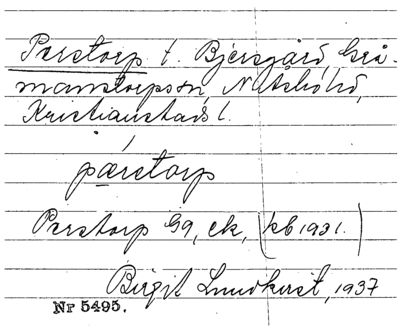 Perstorp t. Bjärsgård, Grå-
manstorps sn, N. Åsbo hd,
Kristianstads l.
pǽrstorp
Perstorp Gg, ek, (kb 1931.)
Birgit Lundkvist, 1937
Nr 5495.